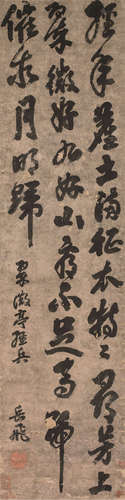 経年塵土満征衣特々尋芳上
翠微好水好山看不足馬蹄
催趁月明歸
翠微亭經兵
岳飛